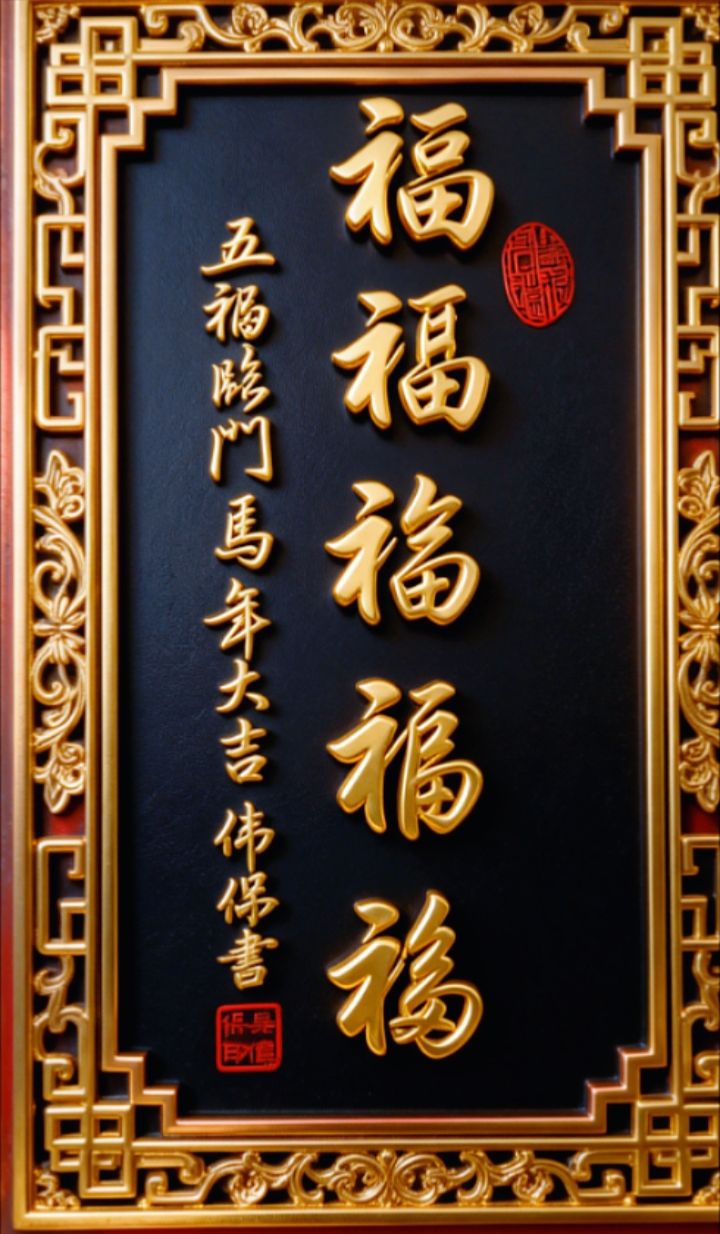 福福福福福
五福臨門馬年大吉 伟保書